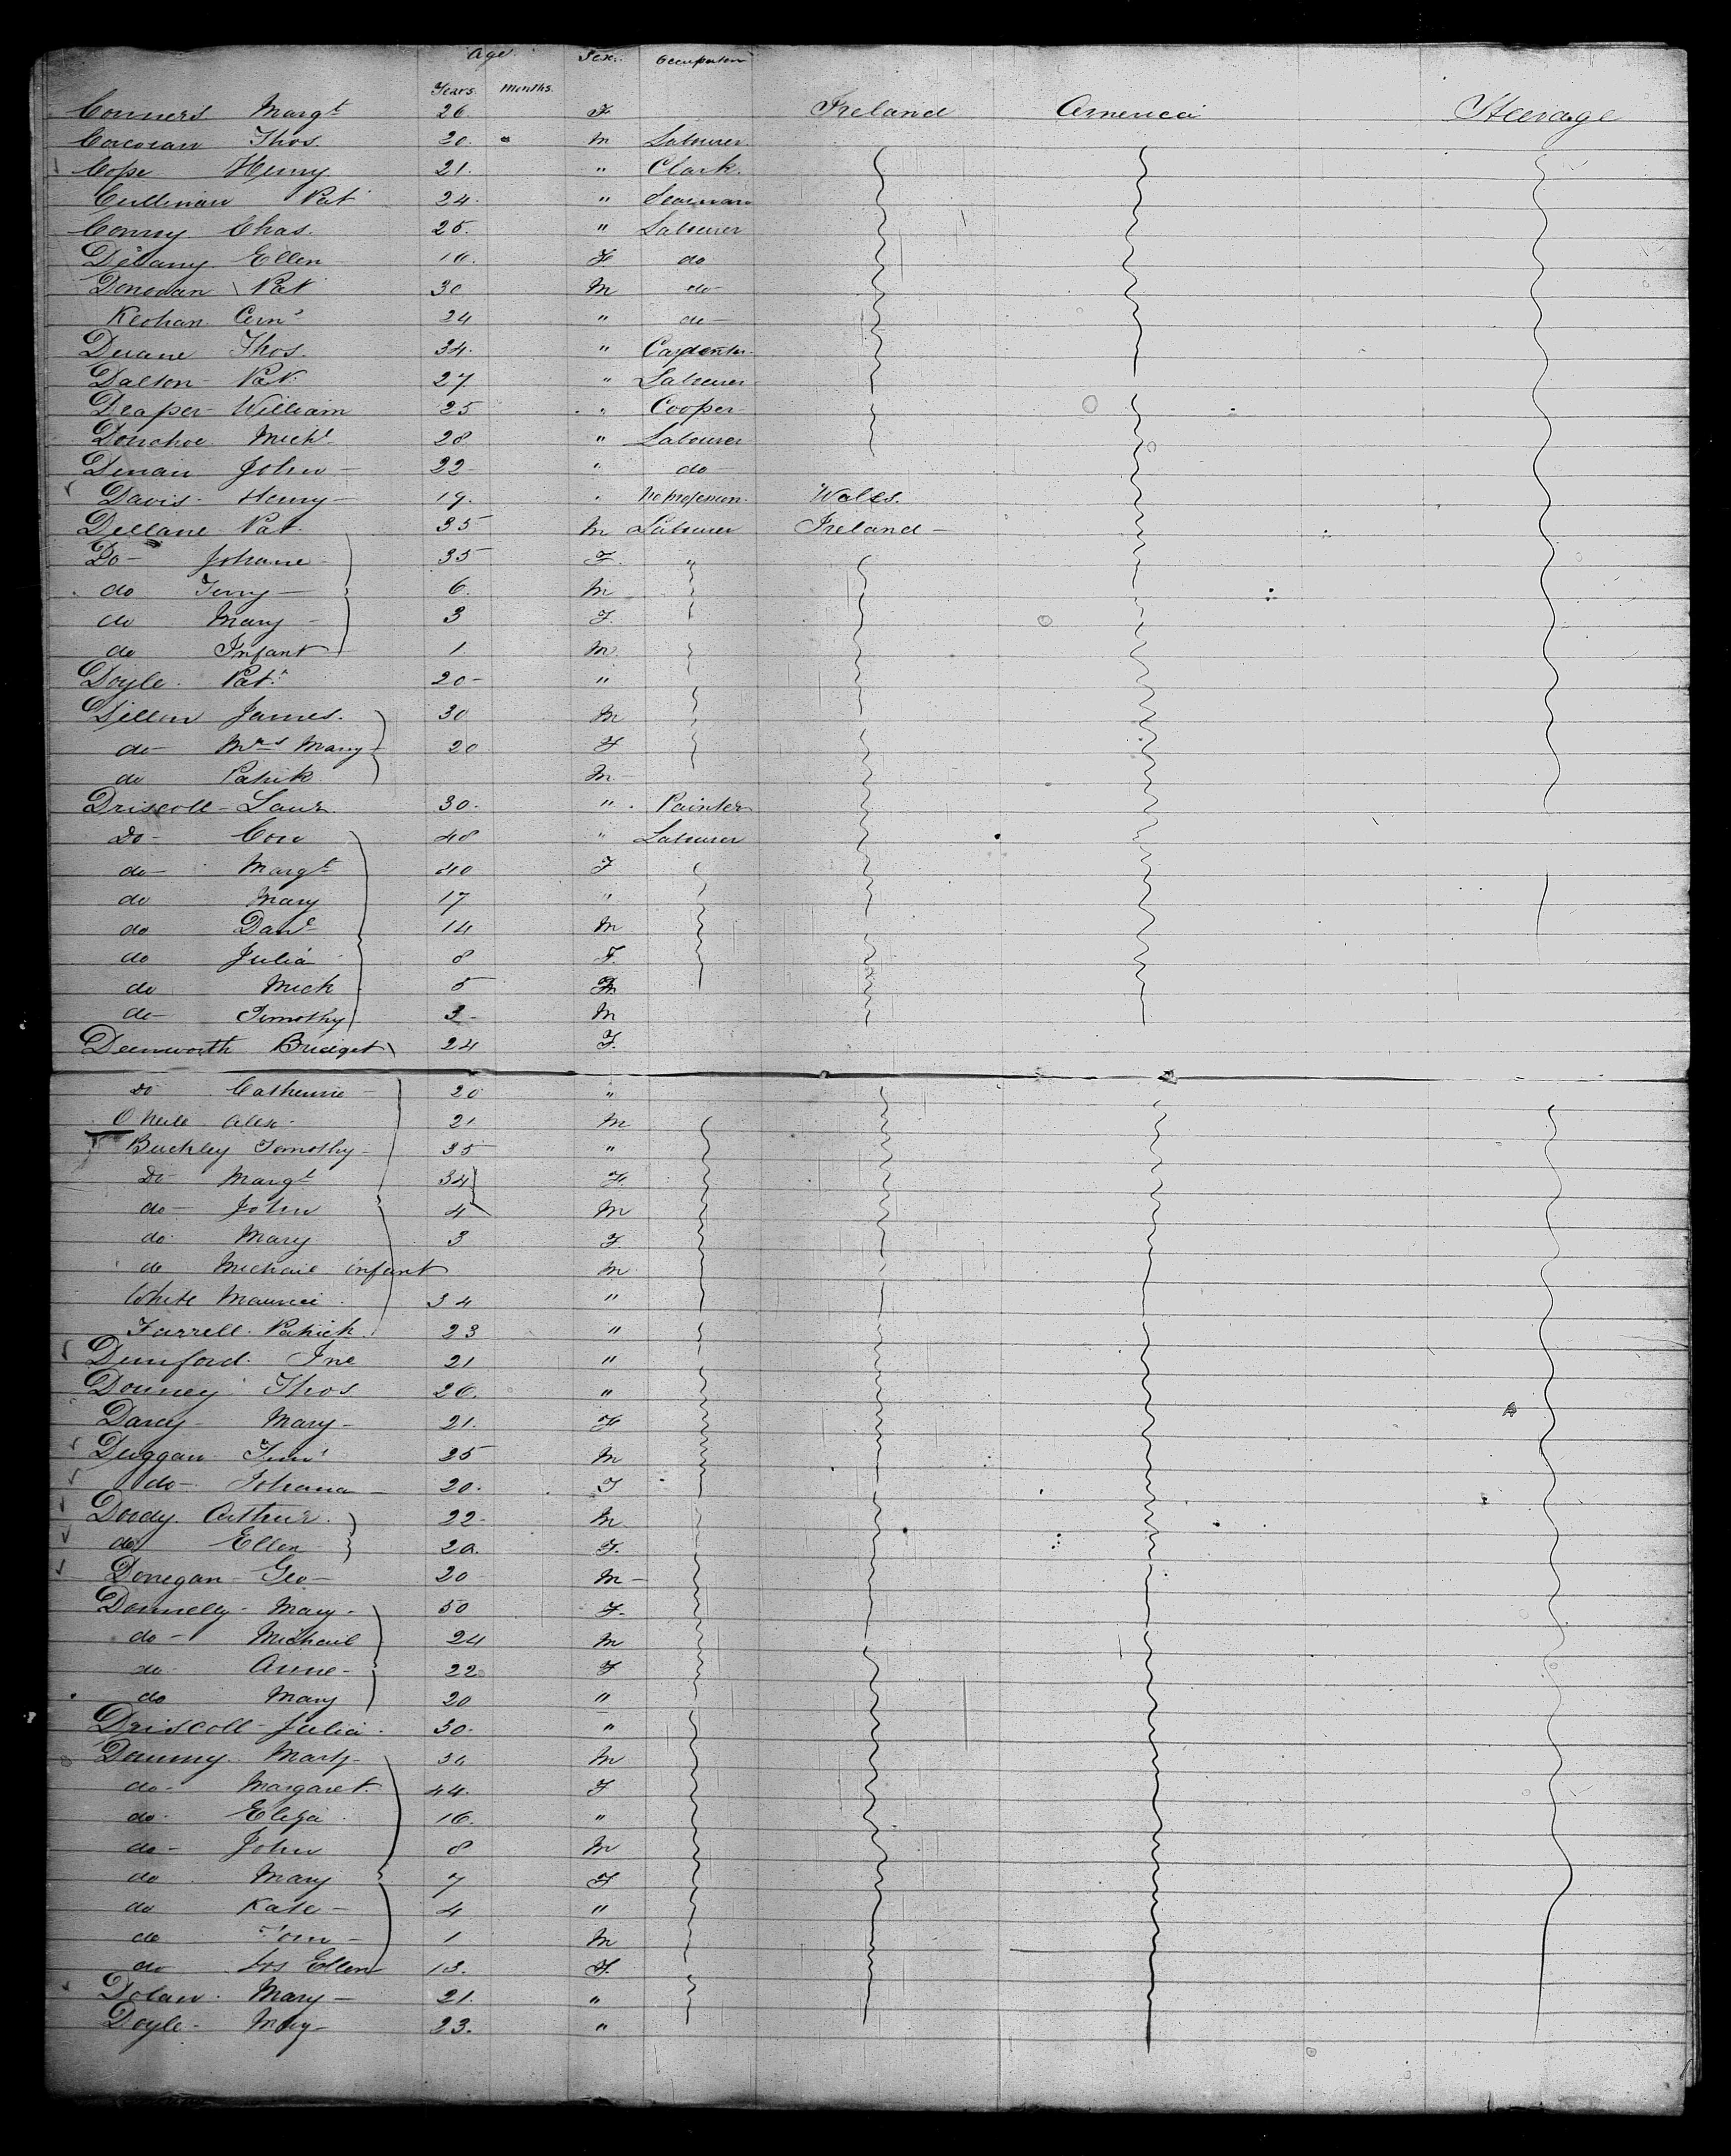 Age Sex Occupation
Years Months
Conners Margt 26 F Ireland America Steerage
Corcoran Thos. 20 M Labourer
Cope Henry 21. " Clark.
Cullinan Pat 24. " Seaman
Conny Chas. 25. " Labourer
Delany Ellen F do
Donovan Pat 30 M do
Keohan Corns 24 " do
Duane Thos. 34. " Carpenter
Dalton Pat. 27 " Labourer
Draper William 25 " Cooper
Donohoe Michl 28 " Labourer
Dinan John 22 " do
Davis Henry 19. " No profession Wales.
Dellane Pat 35 M Labourer Ireland
Do Johane 35 F. "
do Terry 6. M
do Mary 3 F.
do Infant 1. M.
Doyle Patk 20 "
Dillon James. 30 M
do Mrs Mary 20 F
do Patrik M
Driscoll Laur 30. " Painter
Do Con 48 " Labourer
do Margt 40 F
do Mary 17 "
do Danl 14 M
do Julia 8 F.
do Mich 5
do Timothy 3 M
Denworth Bridget 24 F.
Do Catherine 20 "
O Neile Alex 21 M
Buckley Timothy 35 "
Do Margt 34 F.
do John 4 M
do Mary 3 F.
do Michael infant M
White Maurice 34 "
Farrell Patrick 23 "
Dunford. Jno 21 "
Downey Thos 26. "
Darcy Mary 21. F
Duggan Timy 25 M
do Johana 20. F
Doody Arthur. 22 M
do Ellen 20. F.
Donegan Geo 20 M
Donnelly Mary 50 F.
do Michael 24 M
do Anne 22 F
do Mary 20 "
Driscoll Julia 30. "
Danny M
do Margaret 44. F
do Eliza 16. "
do John 8 M
do Mary 7 F
do Kate 4 "
do Tom 1 M
do Ellen 13. F.
Dolan Mary 21. "
Doyle 23. "